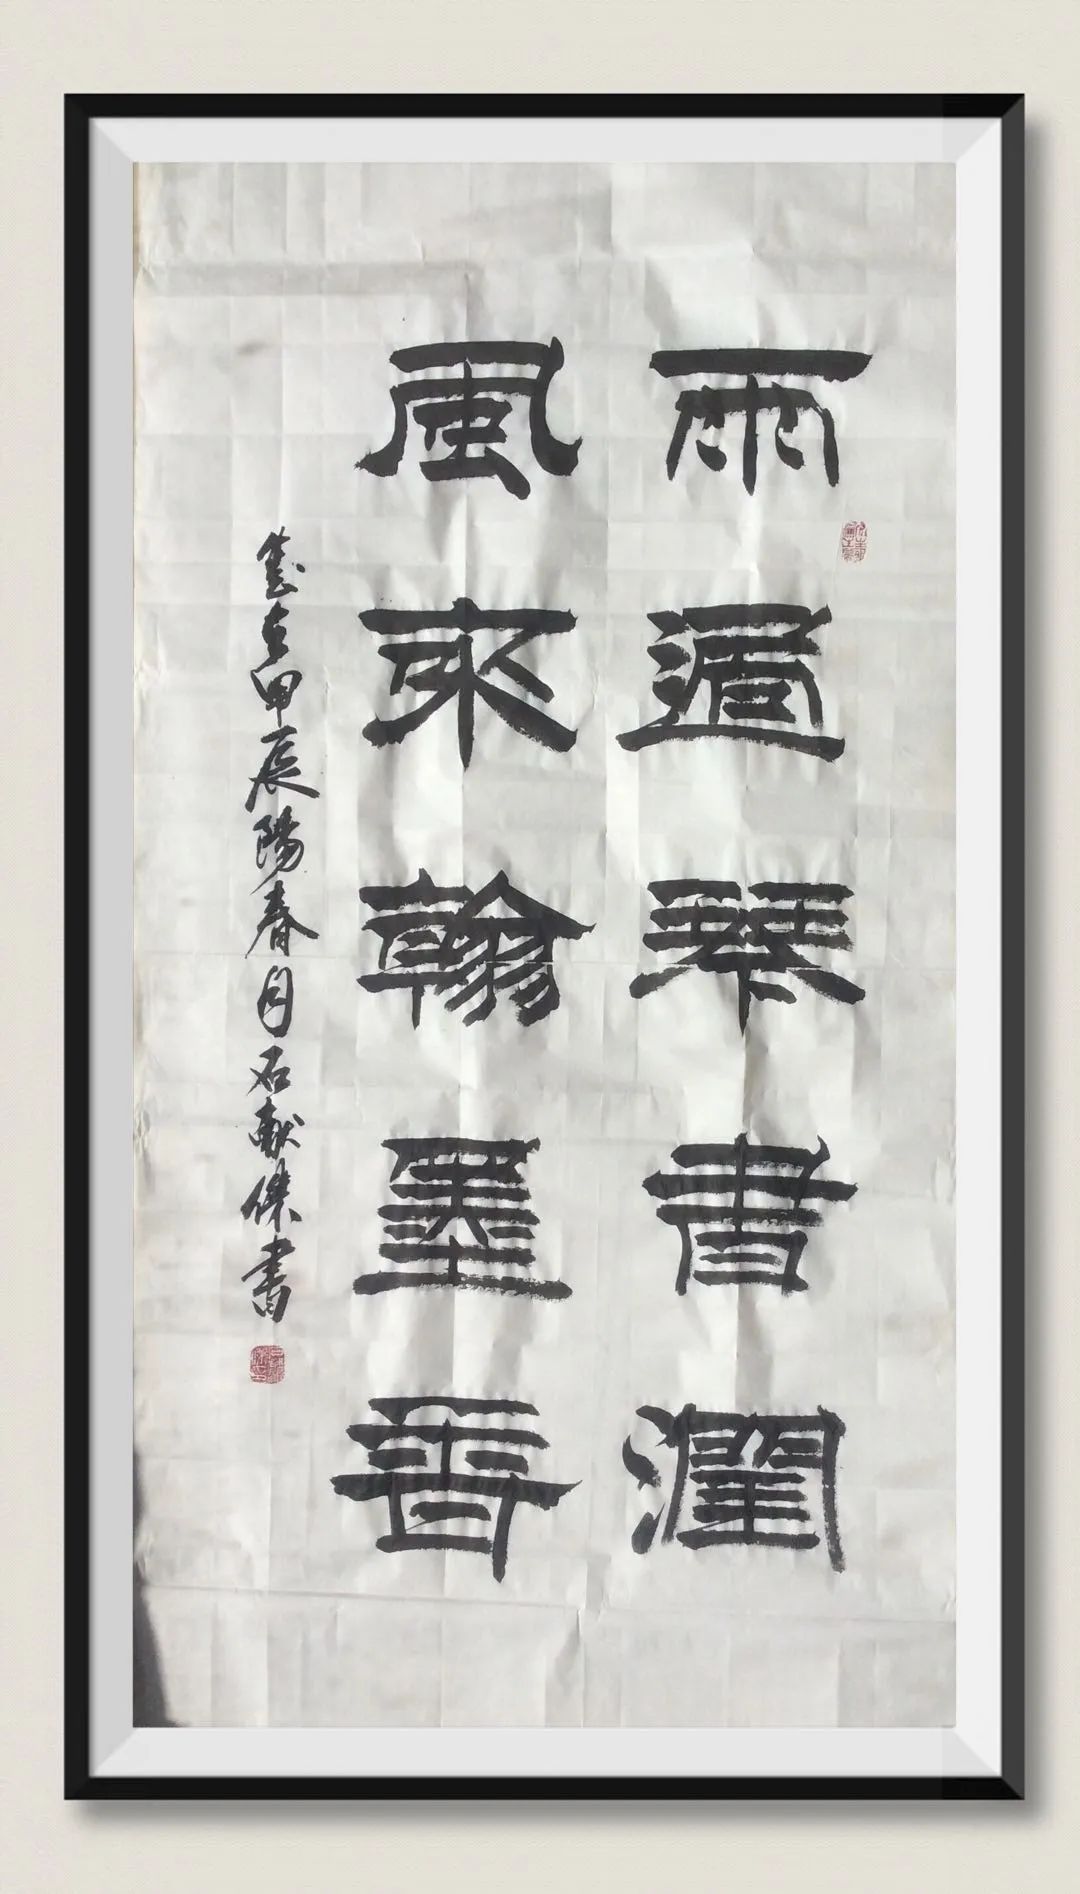 雨過琴書潤
風來翰墨香
歲在甲辰陽春月石献傑書